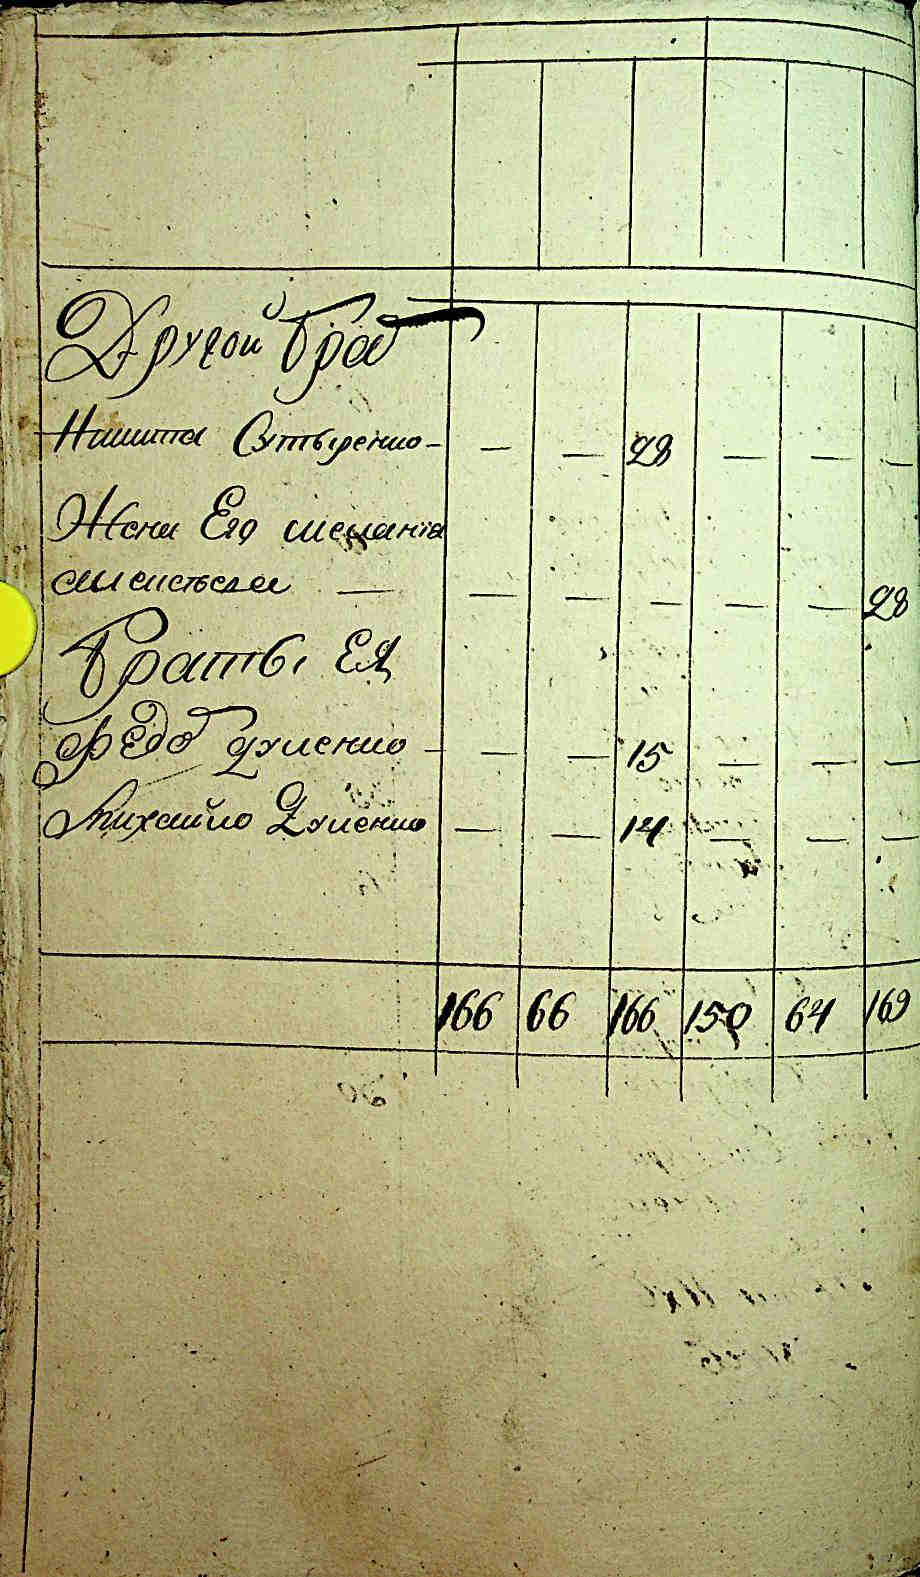 Другой брат
Никита Сутыренко - — — 28 — — —
Жена Его мелания
— — — — — — 28
Браты Ея
Федо Дуленко — — — 15 — — —
Михайло Дуленко — — 14 — — —
166 66 166 150 64 169